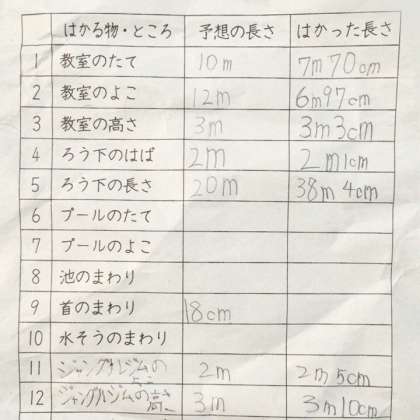 はかる物・ところ 予想の長さ はかった長さ
1 教室のたて 10m 7m70cm
2 教室のよこ 12m 6m97cm
3 教室の高さ 3m 3m3cm
4 ろう下のはば 2m 2m1cm
5 ろう下の長さ 20m 38m4cm
6 プールのたて
7 プールのよこ
8 池のまわり
9 首のまわり 18cm
10 水そうのまわり
11 ジャングルジムの 2m 2m5cm
12 ジャングルジムの高さ 3m 3m10cm